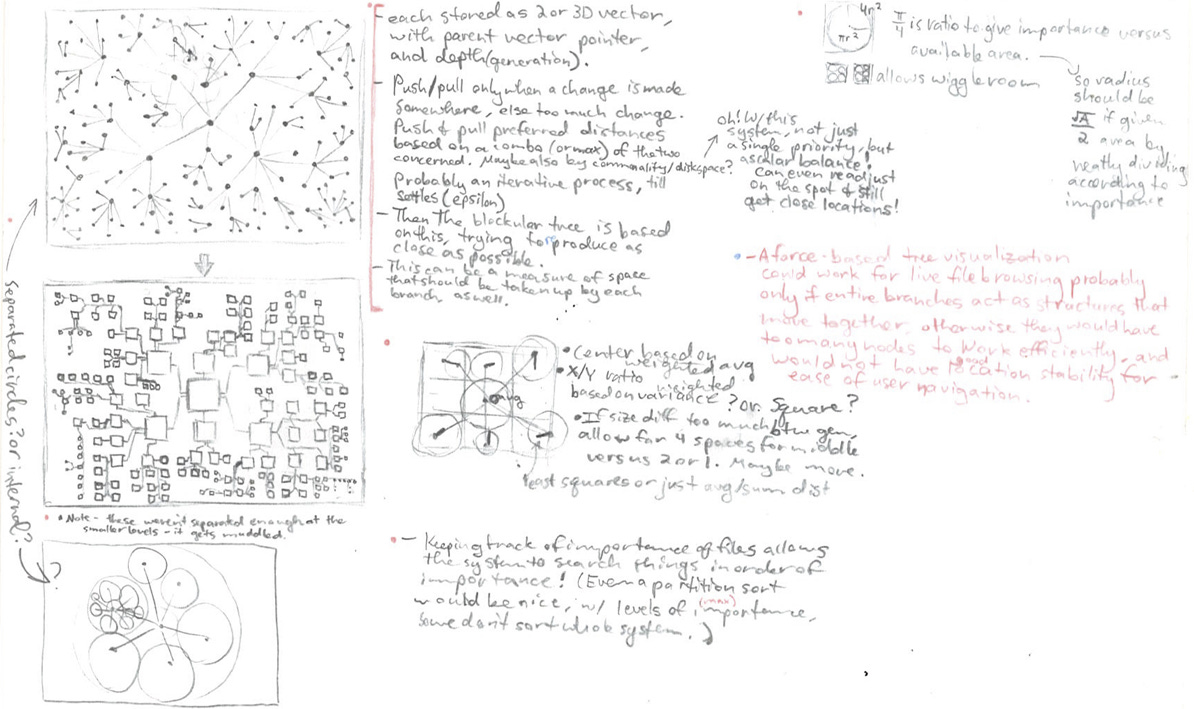 each stored as 2 or 3D vector,
with parent vector pointer,
and depth (generation).
- Push/pull only when a change is made
somewhere, else too much change.
Push & pull preferred distances
based on a combo (or max) of the two
concerned. Maybe also by commonality/diskspace?
Probably an iterative process, till
settles (epsilon)
- Then the blockular tree is based
on this, trying to produce as
close as possible.
- This can be a measure of space
that should be taken up by each
branch, as well.
oh! w/ this
system, not just
a single priority, but
a scalar balance!
Can even readjust
on the spot & still
get close locations!
4r²
πr²
π/4 is ratio to give importance versus
available area.
allows wiggle room
so radius
should be
√A/2 if given
area by
neatly dividing
according to
importance
- A force-based tree visualization
could work for live file browsing probably
only if entire branches act as structures that
move together, otherwise they would have
too many nodes to work efficiently, and
would not have good location stability for
ease of user navigation.
avg
• Center based on
weighted avg
• X/Y ratio
based on weighted
variance? or Square?
• If size diff too much btw gen,
allow for 4 spaces for middle
versus 2 or 1. Maybe move.
least squares or just avg/sum dist
Separated circles? or internal?
• Note - these weren't separated enough at the
smaller levels - it gets muddled.
?
- Keeping track of importance of files allows
the system to search things in order of
importance! (Even a partition sort
would be nice, w/ levels of (max) importance,
so we don't sort whole system.)